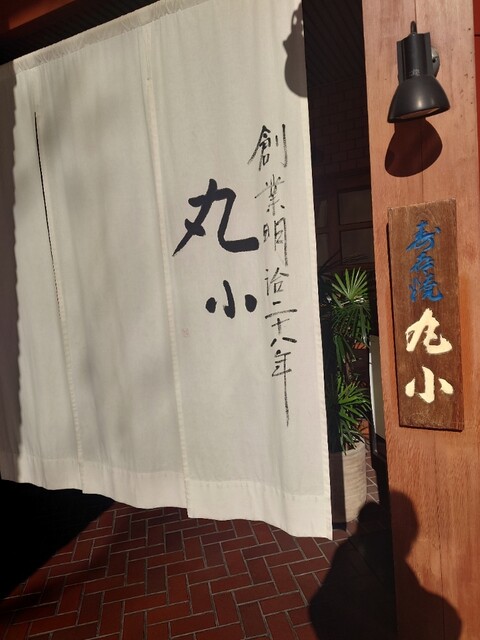 創業明治二十八年
丸小
寿 焼
丸小